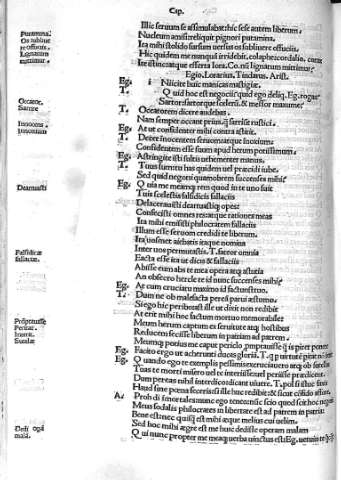 Cap.
Illic seruum se assimulabat: hic sese autem liberum.
Nucleum amisi: reliquit pignori putamina.
Ita mihi stolido sursum uersus os subliuere offuciis.
Hic quidem me numquam irridebit. colaphe. cordalio. corax
Ite istinc atque efferte lora. Co. nū lignatum mittimur
Egio. Lorarius. Tindarus. Arist.
Eg. i Niicite huic manicas mastigiae.
T. Quid hoc est negocii: quid ego deliq. Eg. rogas
Sartor satorque scelerū. & messor maxume
T. Occatorem dicere audebas.
Nam semper occant prius. q̄ sarriūt rustici.
Eg. At ut confidenter mihi contra astitit.
T. Decet innocentem seruum atque inoxium
Confidentem esse suum apud herum potissimum.
Eg. Astringite isti sultis uehementer manus.
T. Tuus sum: tu has quidem uel praecidi iube.
Sed quid negoci quamobrem succenses mihi
Eg. Quia me meamq; rem quod in te uno fuit
Tuis scelestis falsidicis fallaciis
Delacerauisti deartuastiq; opes:
Confecisti omnes res: atque rationes meas
Ita mihi exemisti philocratem fallaciis
Illum esse seruom credidi te liberum.
Ita uosmet aiebatis itaque nomina
Inter uos permutastis. T. fateor omnia
Facta esse ita ut dicis & fallaciis
Abisse eum abs te mea opera atq; astutia
An obsecro hercle te id nunc succenses mihi
Eg. At cum cruciatu maximo id factumst tuo.
T. Dum ne ob malefacta peream: parui aestumo.
Si ego hic peribo: ast ille ut dixit non redibit
At erit mihi hoc factum mortuo memorabile
Meum herum captum ex seruitute atq; hostibus
Reducem fecisse liberum in patriam ad patrem.
Meumq; potius me caput periclo
Eg. Facito ergo ut acherunti duces gloria. T.
Eg. Quando ego te exemplis pessimis cruciauero atq; ob
Tuas te morti misero: uel te interiisse uel periisse praedicent.
Dum pereas nihil interdico dicant uiuere. T. pol si istuc faxis
Haud sine poena feceris: si ille huc redibit:
A. Proh di immortales nunc ego teneo: nunc scio quid hoc negoci
Meus sodalis philocrates in libertate est ad patrem in patria:
Bene est: nec quisq̄ est mihi aeque melius cui uelim.
Sed hoc mihi aegre est me huic dedisse operam malam
Qui nunc propter me meaq; uerba uinctus est. Eg.
Putamina.
Os subliuere offuciis.
Lignatum mittimur
Occator.
Sartor
Innocens.
Innoxium
Deartuasti
Falsidicae fallaciae.